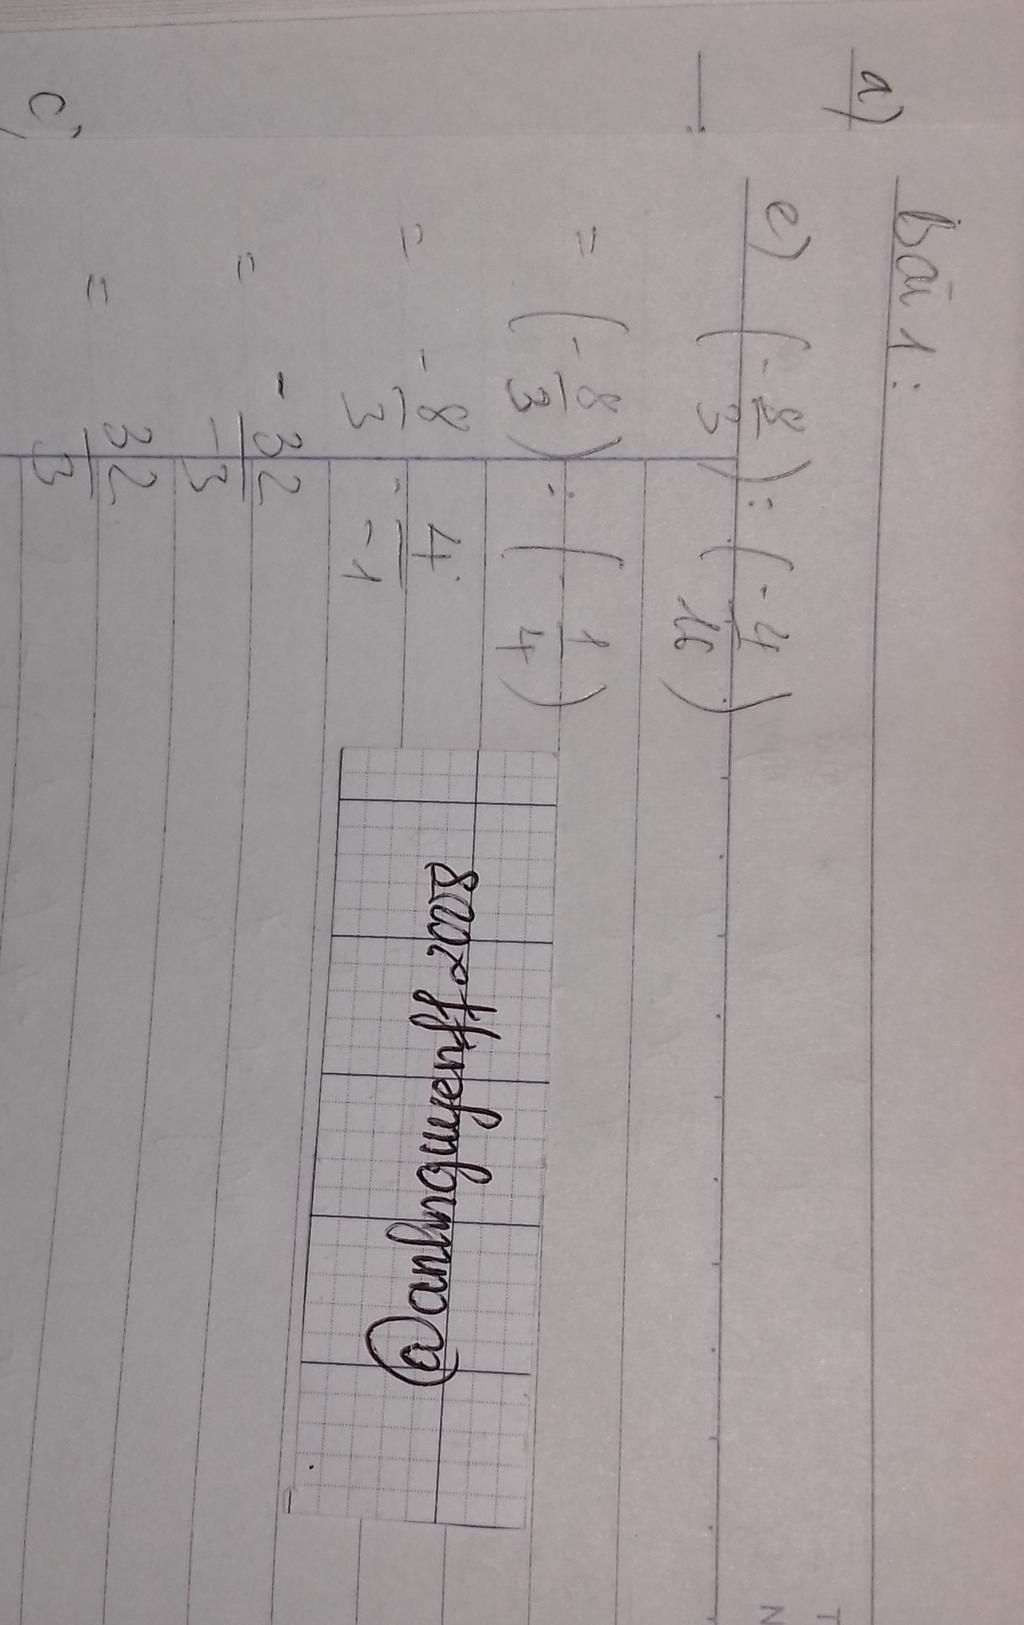 Bài 1:
a)
e) (-8/3) : (-4/16)
= (-8/3) : (-1/4)
= -8/3 . 4/-1
= -32/-3
= 32/3
c)
@anhnguyenff2008